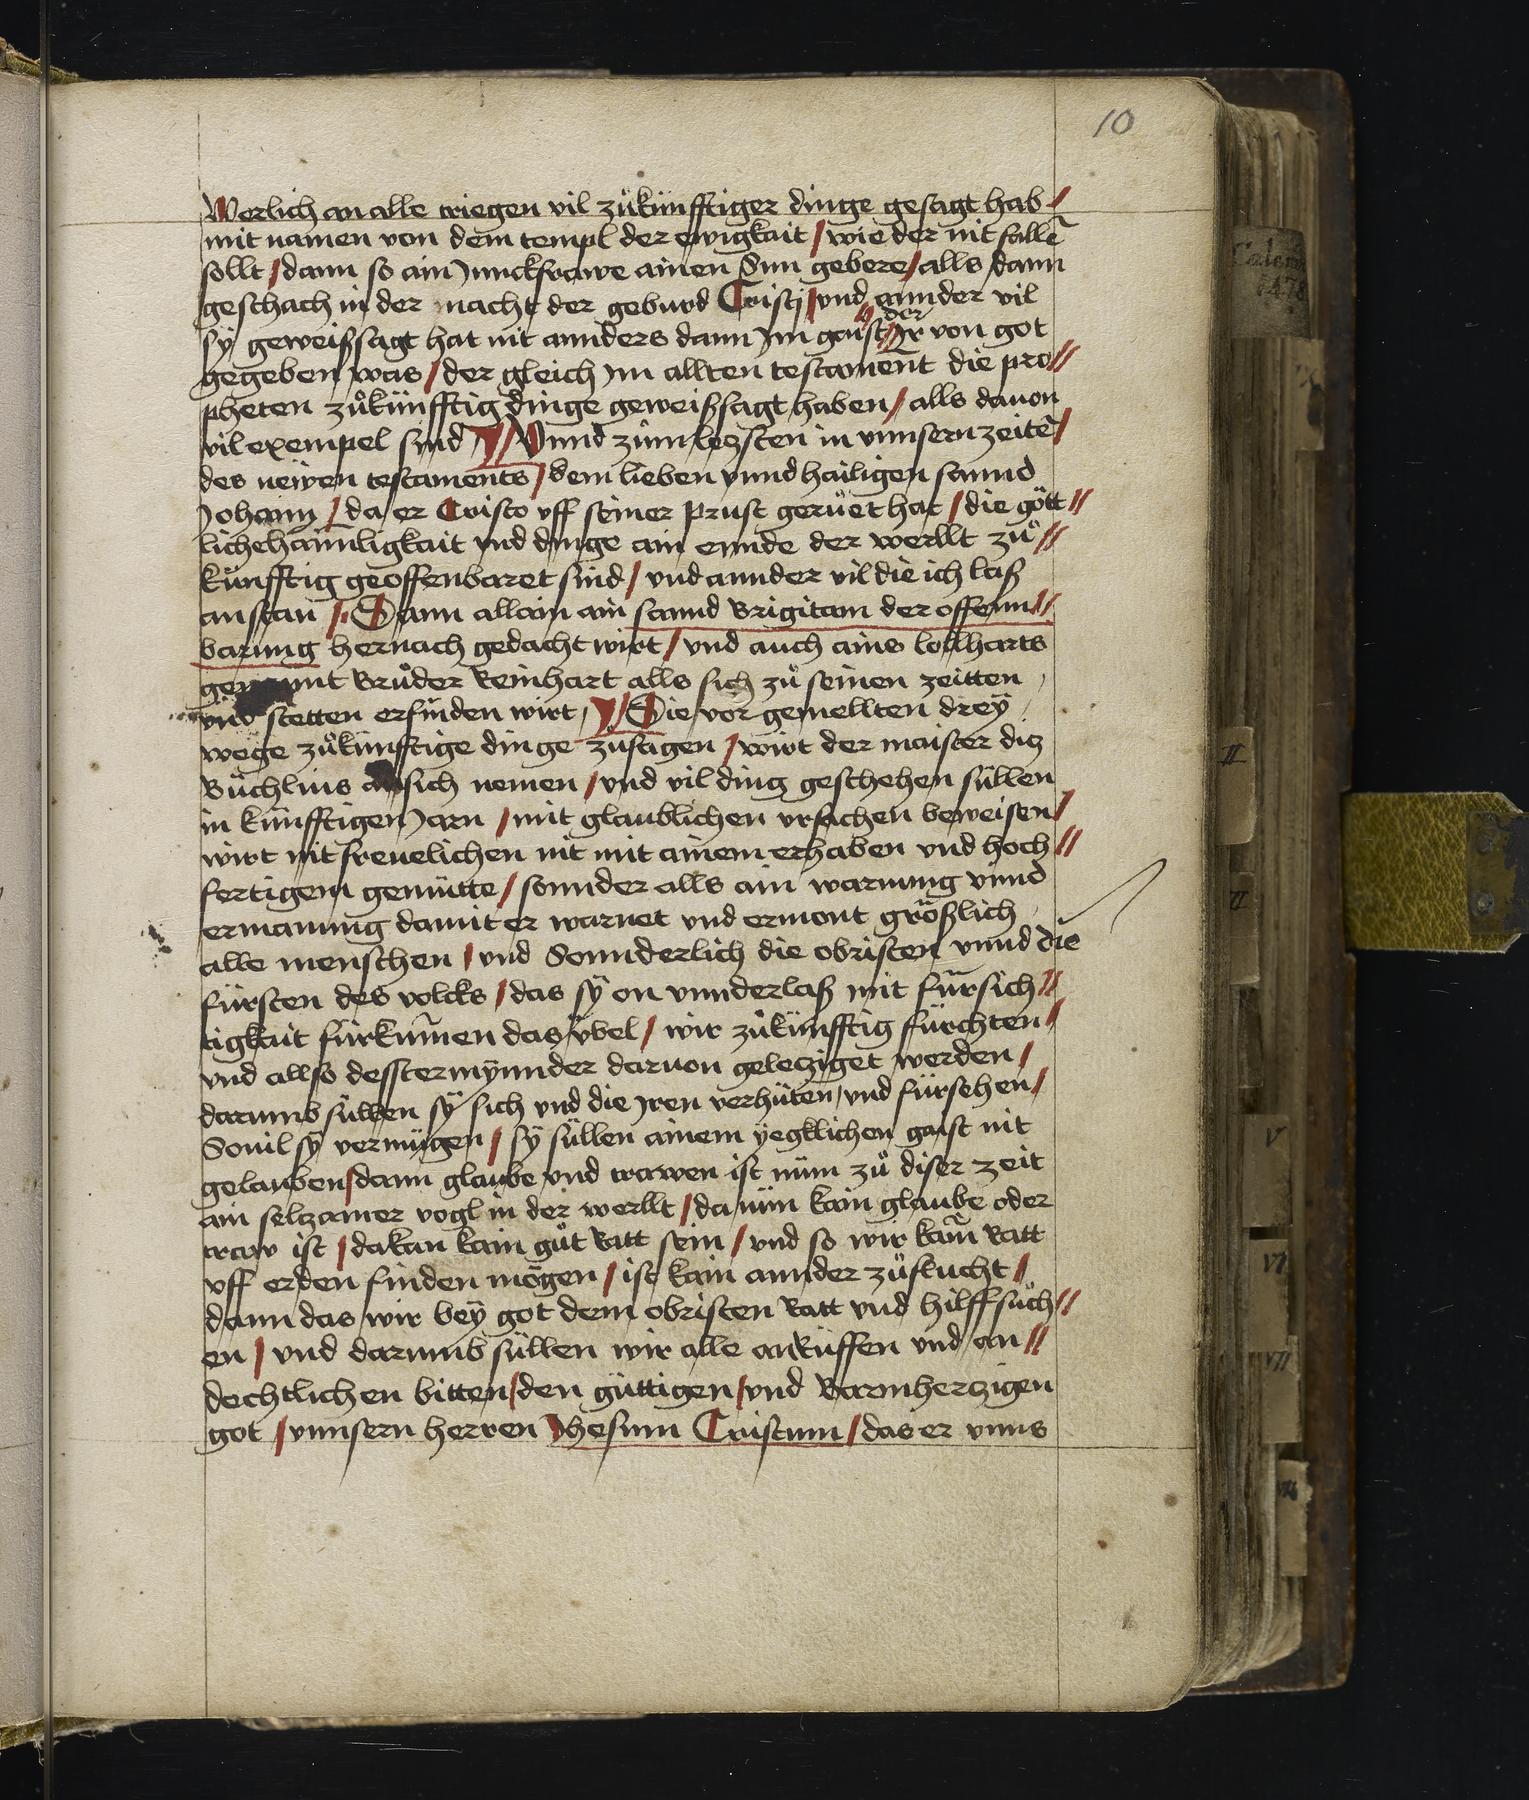 10
Werlich an alle triegen vil zůkünfftiger dinge gesagt hab /
mit namen von dem templ der ewigkait / wie der nit fallē
sollt / dann so ain Junckfrawe ainen Sun gebere / alls dann
geschach in der nacht der geburd Cristi / vnd annder vil
der
sÿ geweißsagt hat nit annders dann Jm gaist // Jr von got
gegeben was / der gleich Jm allten testament die pro //
pheten zůkünfftig dinge geweißsagt haben / alls dauon
vil exempel sind // Vnnd zům letzsten in vnnsern zeitē /
des neẅen testaments / dem lieben vnnd hailigen sannd
Johann / da er Cristo vff seiner prust gerůet hat / die gött //
liche haimligkait vnd dinge ain ennde der werllt zů //
künfftig geoffenbaret sind / vnd annder vil die ich laß
anstan / Dann allain ain sannd Brigitam der offenn //
barung hernach gedacht wirt / vnd auch ains lollharts
genannt Brůder Reinhart alls sich zů seinen zeitten
vnd stetten erfinden wirt / Die vor gemellten dreÿ
wege zůkünfftige dinge zůsagen / wirt der maister ditz
Büchlins an sich nemen / vnd vil ding geschehen süllen
in künfftigen Jarn / mit glaublichen vrsachen beweisen /
wirt nit freuelichen nit mit ainem erhaben vnd hoch //
fertigem gemütte / sonnder alls ain warnung vnnd
ermanung damit er warnet vnd ermont größlich
alle menschen / vnd Sonnderlich die obristen vnnd die
fürsten des volcks / das sÿ on vnnderlaß mit fürsich //
tigkait fürkūmen das v̈bel / wir zůkünfftig fürchten /
vnd allso desstermÿnnder daruon geletziget werden /
darumb süllen sÿ sich vnd die Jren verhüten / vnd fürsehen /
Souil sÿ vermügen / sÿ süllen ainem ÿegklichen gaist nit
gelauben / dann glaube vnd trawen ist nun zů diser zeit
ain seltzamer vogl in der werllt / da nün kain glaube oder
traw ist / da kan kain gůt Ratt sein / vnd so wir kain Ratt
vff erden finden mögen / ist kain annder zůflucht /
dann das wir beÿ got dem obristen Ratt vnd hilff sůch //
en / vnd darumb süllen wir alle anrüffen vnd an //
dechtlichen bitten / den güttigen / vnd Barmhertzigen
got / vnnsern herren Jhesum Cristum / das er vnns
1478
II
V
VI
VII